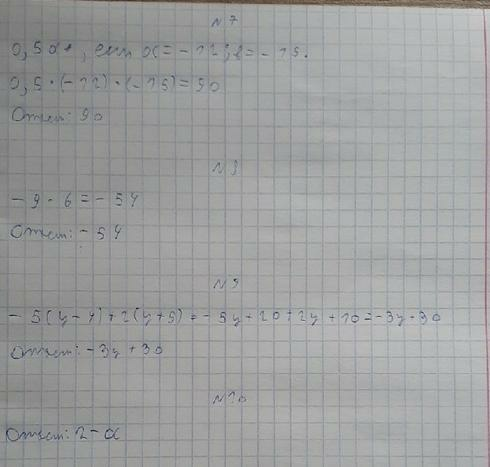 N 7
0,5ab, если a = -12; b = -15.
0,5 · (-12) · (-15) = 90
Ответ: 90
N 8
-9 · 6 = -54
Ответ: -54
N 9
-5(y-4)+2(y+5) = -5y+20+2y+10=-3y+30
Ответ: -3y+30
N 10
Ответ: 2-a